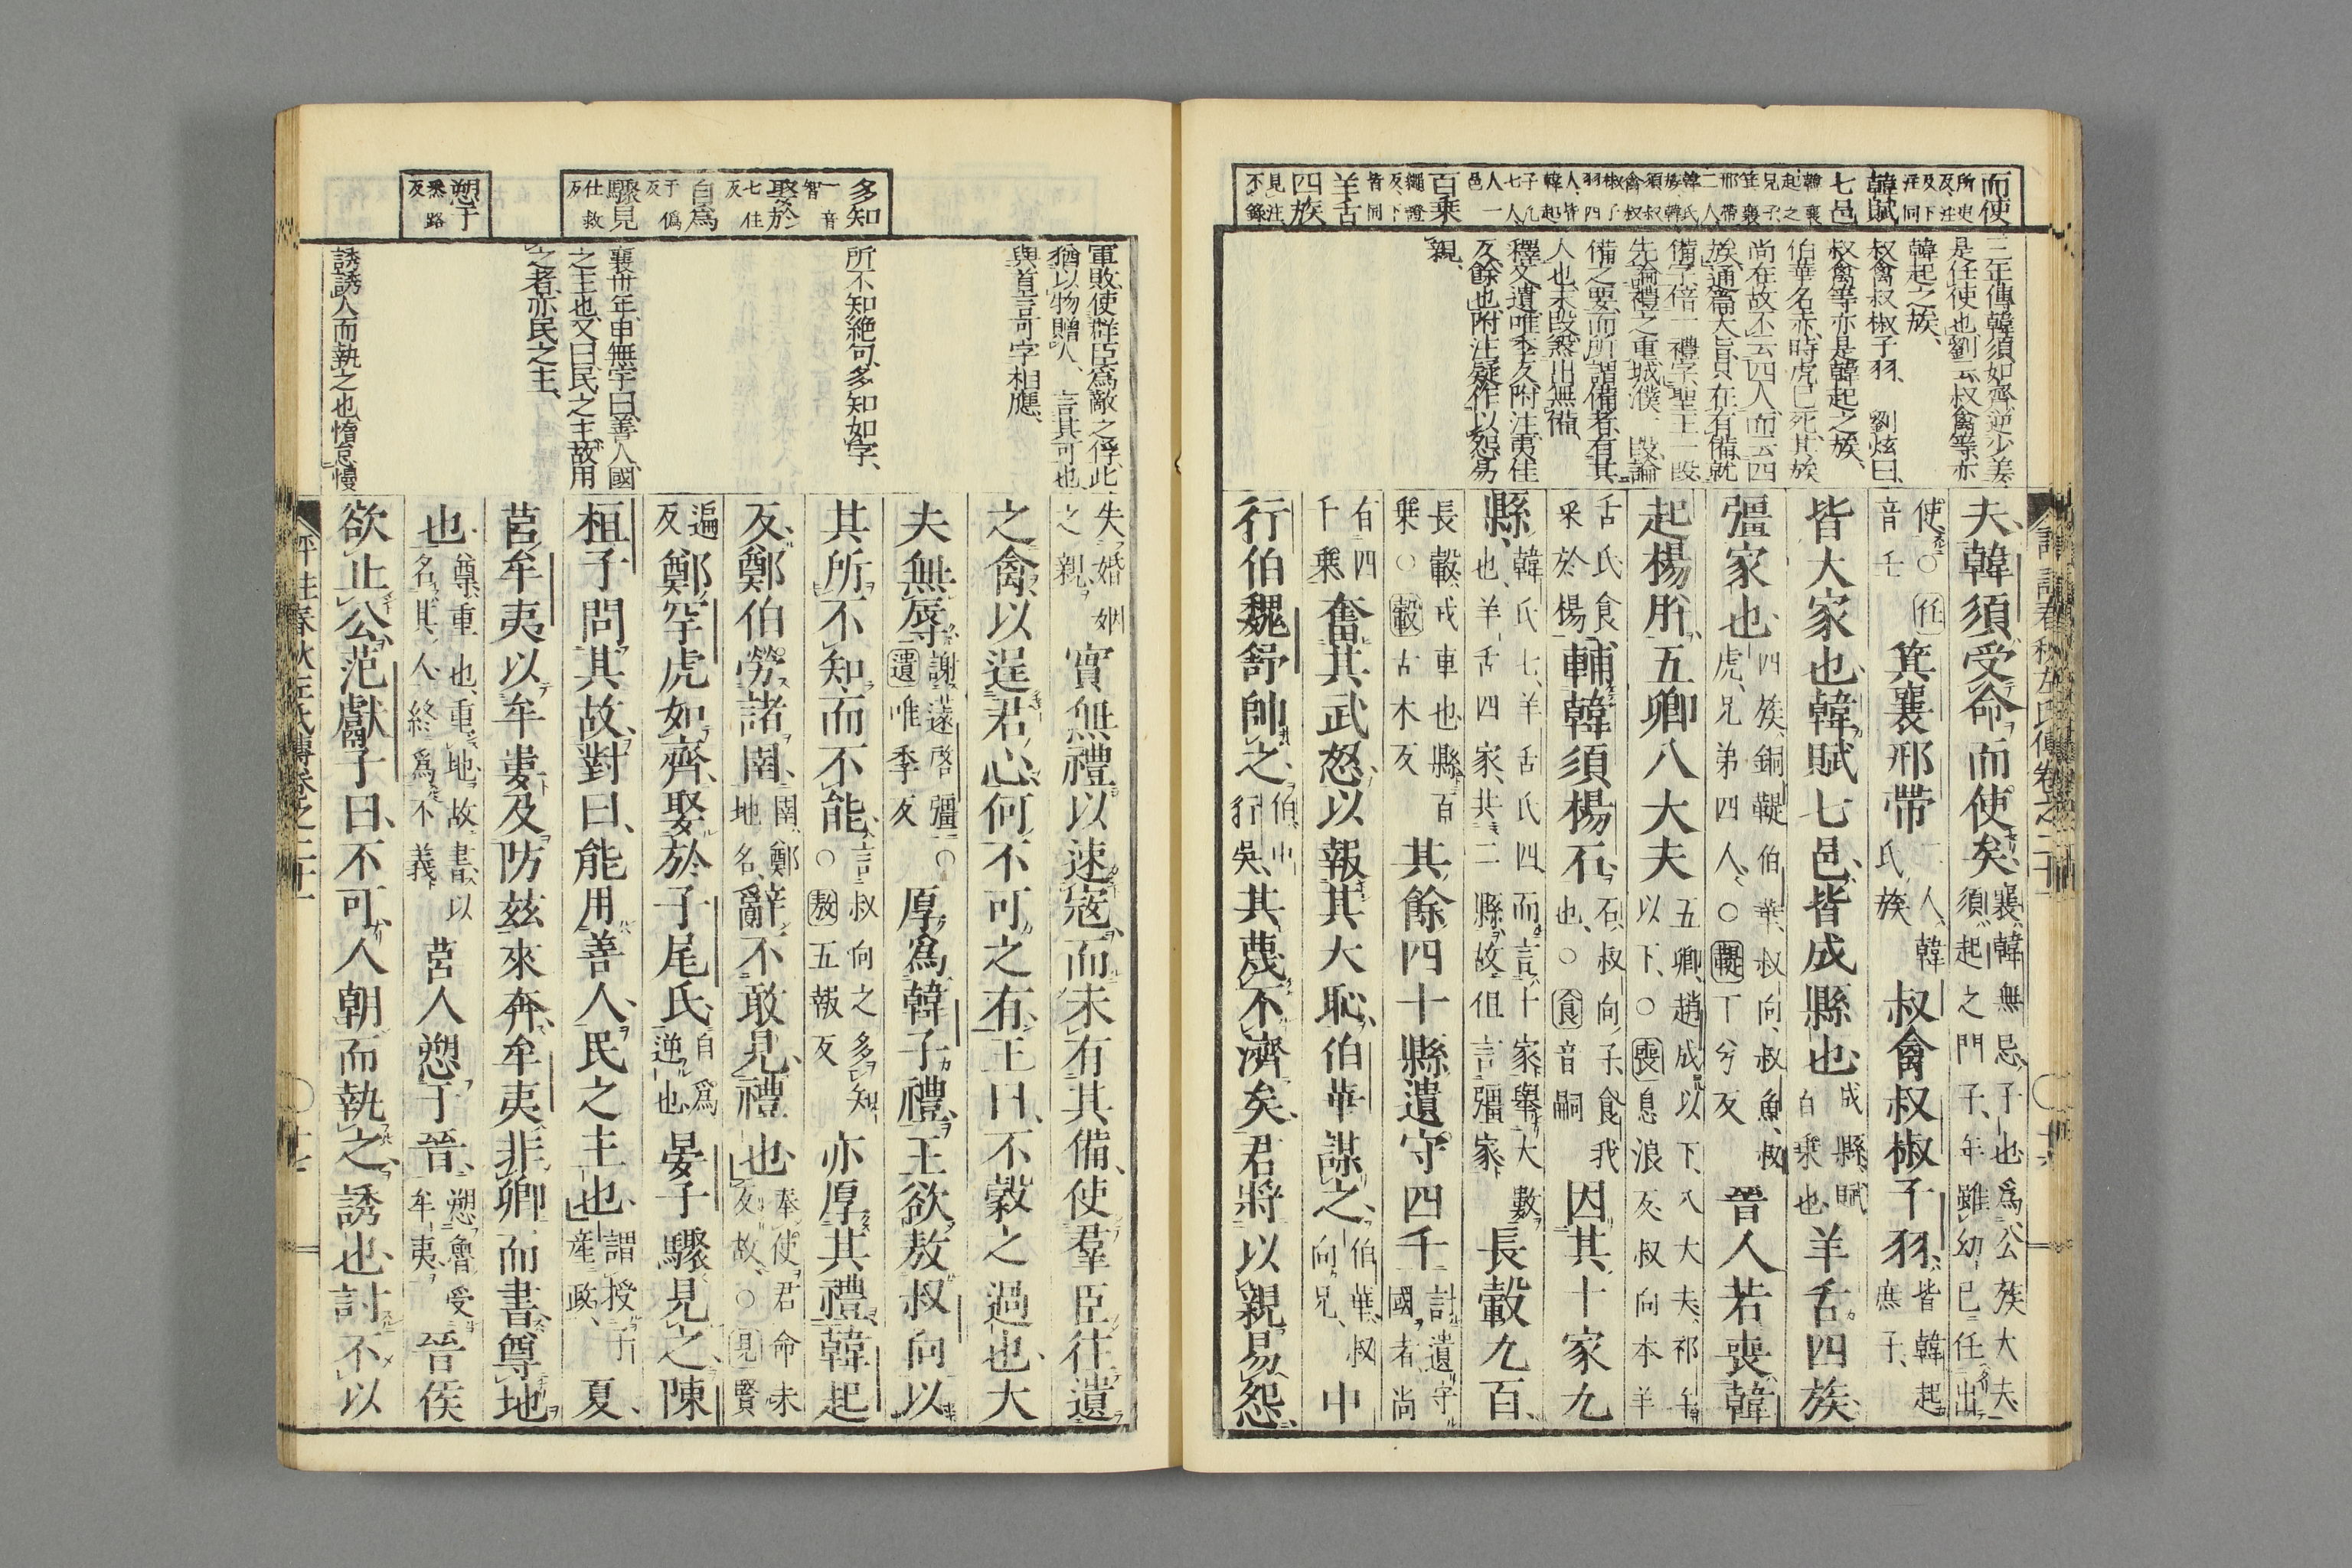 而使 所吏反注及下注同
韓賦
七邑 韓襄起之兄子箕襄邢帶二人韓氏族韓須叔禽叔椒子羽四人皆韓起子凡七人人一邑
百乘 繩證反下皆同
羊舌
四族 見注不錄
三年傳韓須如齊逆少姜、
是任使也劉云叔禽等亦
韓起之族、
叔禽叔椒子羽、 劉炫曰、
叔禽等亦是韓起之族、
伯華名赤時虎已死其族
尚在故不云四人而云四
族、通篇大旨只在有備就
備字倍一禮字聖王一段
先論禮之重城濮一段論
備之要而所謂備者有其
人也末段煞出無備、
釋文遺唯季反附注夷佳
反餘也附注疑作以怨易
親、
夫、韓須受命而使矣、襄韓無忌子也爲公族大夫、須起之門子、年雖幼已任出
使○任音壬 箕襄邢帶二人、韓氏族 叔禽叔椒子羽、皆韓起庶子、
皆大家也、韓賦七邑、皆成縣也、成縣、賦百乘也、羊舌四族、
彊家也、四族、銅鞮伯華、叔向、叔魚、叔虎、兄弟四人、○鞮丁兮反 晉人若喪韓
起楊肸、五卿八大夫五卿、趙成以下、八大夫、祁午以下、○喪息浪反、叔向本羊
舌氏食采於楊 輔韓須楊石、石、叔向子、食我也、○食音嗣 因其十家九
縣、韓氏七、羊舌氏四、而言十家、舉大數也、羊舌四家、共二縣、故但言彊家、 長轂九百、
長轂、戎車也、縣百乘○轂古木反 其餘四十縣遺守四千、計遺守國者、尚
有四千乘、 奮其武怒、以報其大恥、伯華謀之、伯華、叔向兄、 中
行伯魏舒帥之、伯、中行吳、其蔑不濟矣、君將以親易怨、
評註春秋左氏傳卷之二十一 十六
多知 一音智
娶於 七住反
自爲 于僞反
驟見 仕救反
愬于 悉路反
軍敗使群臣爲敵之俘此
猶以物贈人、 言其可也、
與首言可字相應、
所不知絕句、多知如字、
襄卅年、申無宇曰、善人、國
之主也、又曰、民之主、故用
之者、亦民之主、
誘誘人而執之也惰怠慢
失、婚姻之親、 實無禮、以速寇、而未有其備、使羣臣往遺
之禽、以逞君心、何不可之有、王曰、不穀之過也、大
夫無辱、謝薳啓彊○遺唯季反 厚爲韓子禮、王欲敖叔向以
其所不知、而不能、言叔向之多知、○敖五報反 亦厚其禮、韓起
反、鄭伯勞諸圉、圉、鄭地名、辭不敢見、禮也、奉使君命未反、故、○見賢
遍反 鄭罕虎如齊、娶於子尾氏、自爲逆也、 晏子驟見之、陳
桓子問其故、對曰、能用善人、民之主也、謂授子產政、 夏、
莒牟夷以牟婁及防茲來奔、牟夷非卿、而書、尊地
也、尊、重也、重地、故書、以名其人、終爲不義、 莒人愬于晉、愬魯受牟夷、 晉侯
欲止公、范獻子曰、不可、人朝而執之、誘也、討不以
評註春秋左氏傳卷之二十一 十七